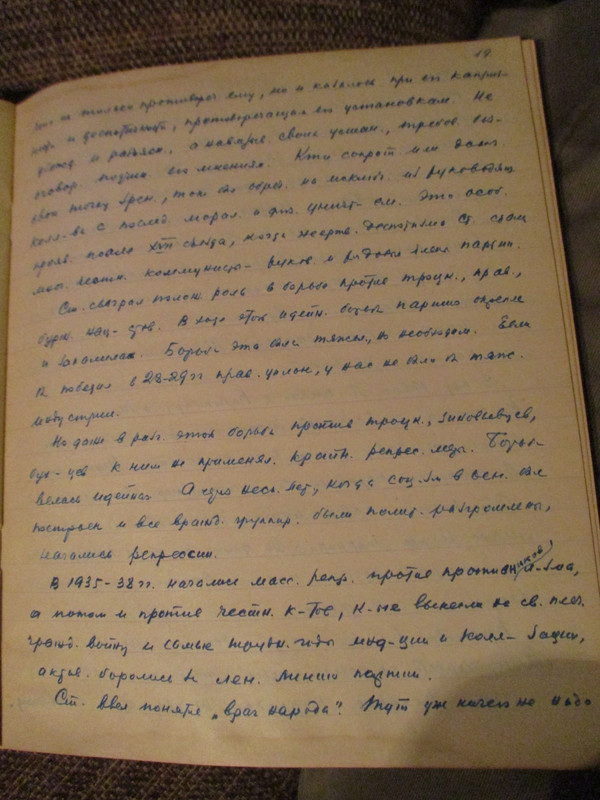 19
что не только противореч ему, но и казалось при его каприз-
ности и деспотичности, противоречащим его установкам. Не
убежд. и разъясн., а навязыв. своих устан., требов. без-
оговор. подчин. его мнению. Кто сопрот. или доказ.
свою точку зрен., тот был обреч. на исключ. из руководящ.
колл-ва с послед. морал. и физ. уничт-ем. Это особ.
прояв. после XVII съезда, когда жертв. деспотизма Ст. стали
мног. честн. коммунисты - руков. и рядовые члены партии.
Ст. сыграл полож. роль в борьбе против троцк., прав.,
бурж. нац-стов. В ходе этой идейн. борьбы партия окрепла
и закалилась. Борьба эта была тяжел., но необходим. Если
б победил в 28-29 гг прав. уклон, у нас не было б тяж.
индустрии.
Но даже в разг. этой борьбы против троцк., зиновьевцев,
бух-цев к ним не применял. крайн. репрес. меры. Борьба
велась идейная. А через неск. лет, когда соц-зм в осн. был
построен и все вражд. группир. были полит. разгромлены,
начались репрессии.
В 1935-38 гг. начались масс. репр. против противников л-зма,
а потом и против честн. к-тов, к-рые вынесли на св. плеч.
гражд. войну и самые трудн. годы инд-ции и колл-зации,
актив. боролись за лен. линию партии.
Ст. ввел понятие „враг народа". Тут уж ничего не надо